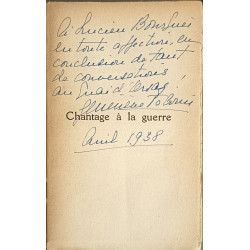 A Lucien Bourguès
en toute affection, en
conclusion de tant
de conversations
au Quai d'Orsay
Geneviève Tabouis
Chantage à la guerre
Avril 1938